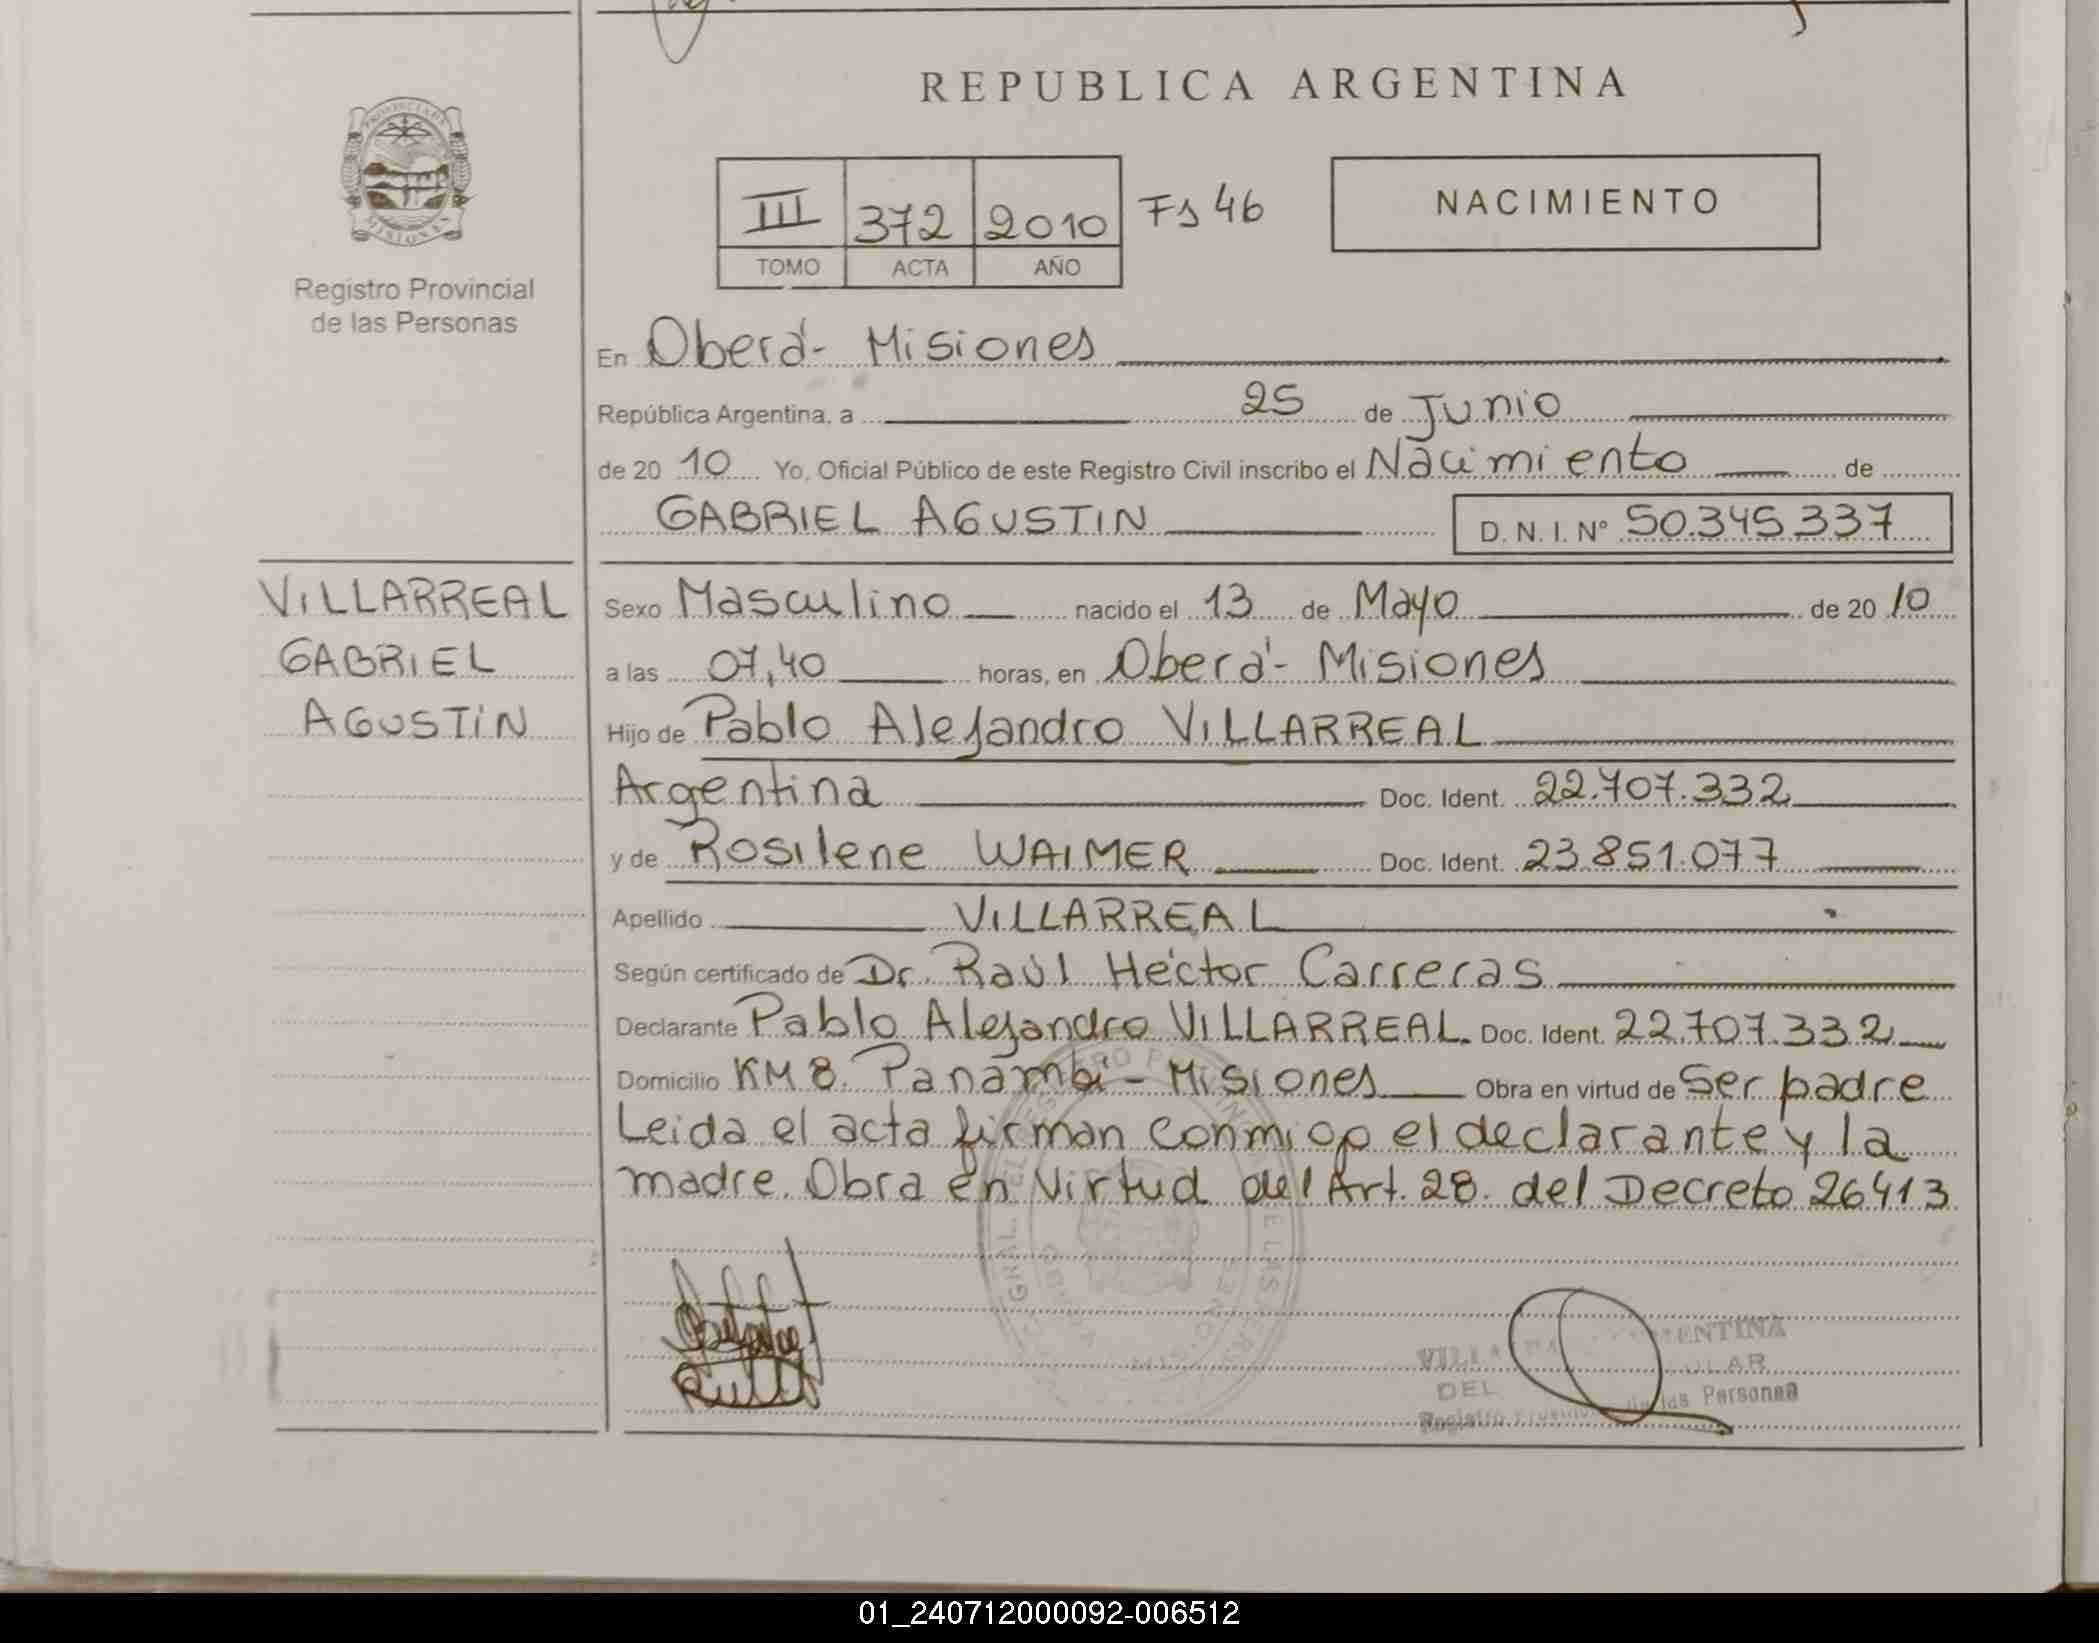 REPUBLICA ARGENTINA
PROVINCIA DE
MISIONES
Registro Provincial
de las Personas
III 372 2010 Fs 46
TOMO ACTA AÑO
NACIMIENTO
En Oberá - Misiones
República Argentina, a 25 de Junio
de 20 10 Yo, Oficial Público de este Registro Civil inscribo el Nacimiento de
GABRIEL AGUSTIN D.N.I. Nº 50.345.337
VILLARREAL
GABRIEL
AGUSTIN
Sexo Masculino nacido el 13 de Mayo de 20 10
a las 07,40 horas, en Oberá - Misiones
Hijo de Pablo Alejandro VILLARREAL
Argentina Doc. Ident. 22.707.332
y de Rosilene WAIMER Doc. Ident. 23.851.077
Apellido VILLARREAL
Según certificado de Dr. Raúl Héctor Carreras
Declarante Pablo Alejandro VILLARREAL. Doc. Ident. 22.707.332
Domicilio KM 8. Panambí - Misiones Obra en virtud de Ser padre
Leida el acta firman conmigo el declarante y la
madre. Obra en Virtud del Art. 28. del Decreto 26413
VILLA MENTINA
DEL
Registro de las Personas
01_240712000092-006512